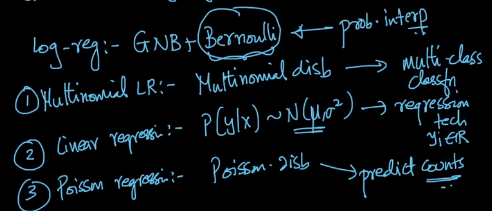 Log-reg:- GNB + Bernoulli ← prob. interp
① Multinomial LR:- Multinomial disb → multi-class classfn
② Linear regressn:- P(y|x) ~ N(μ,σ²) → regression tech yi∈R
③ Poisson regressn:- Poisson-disb → predict counts